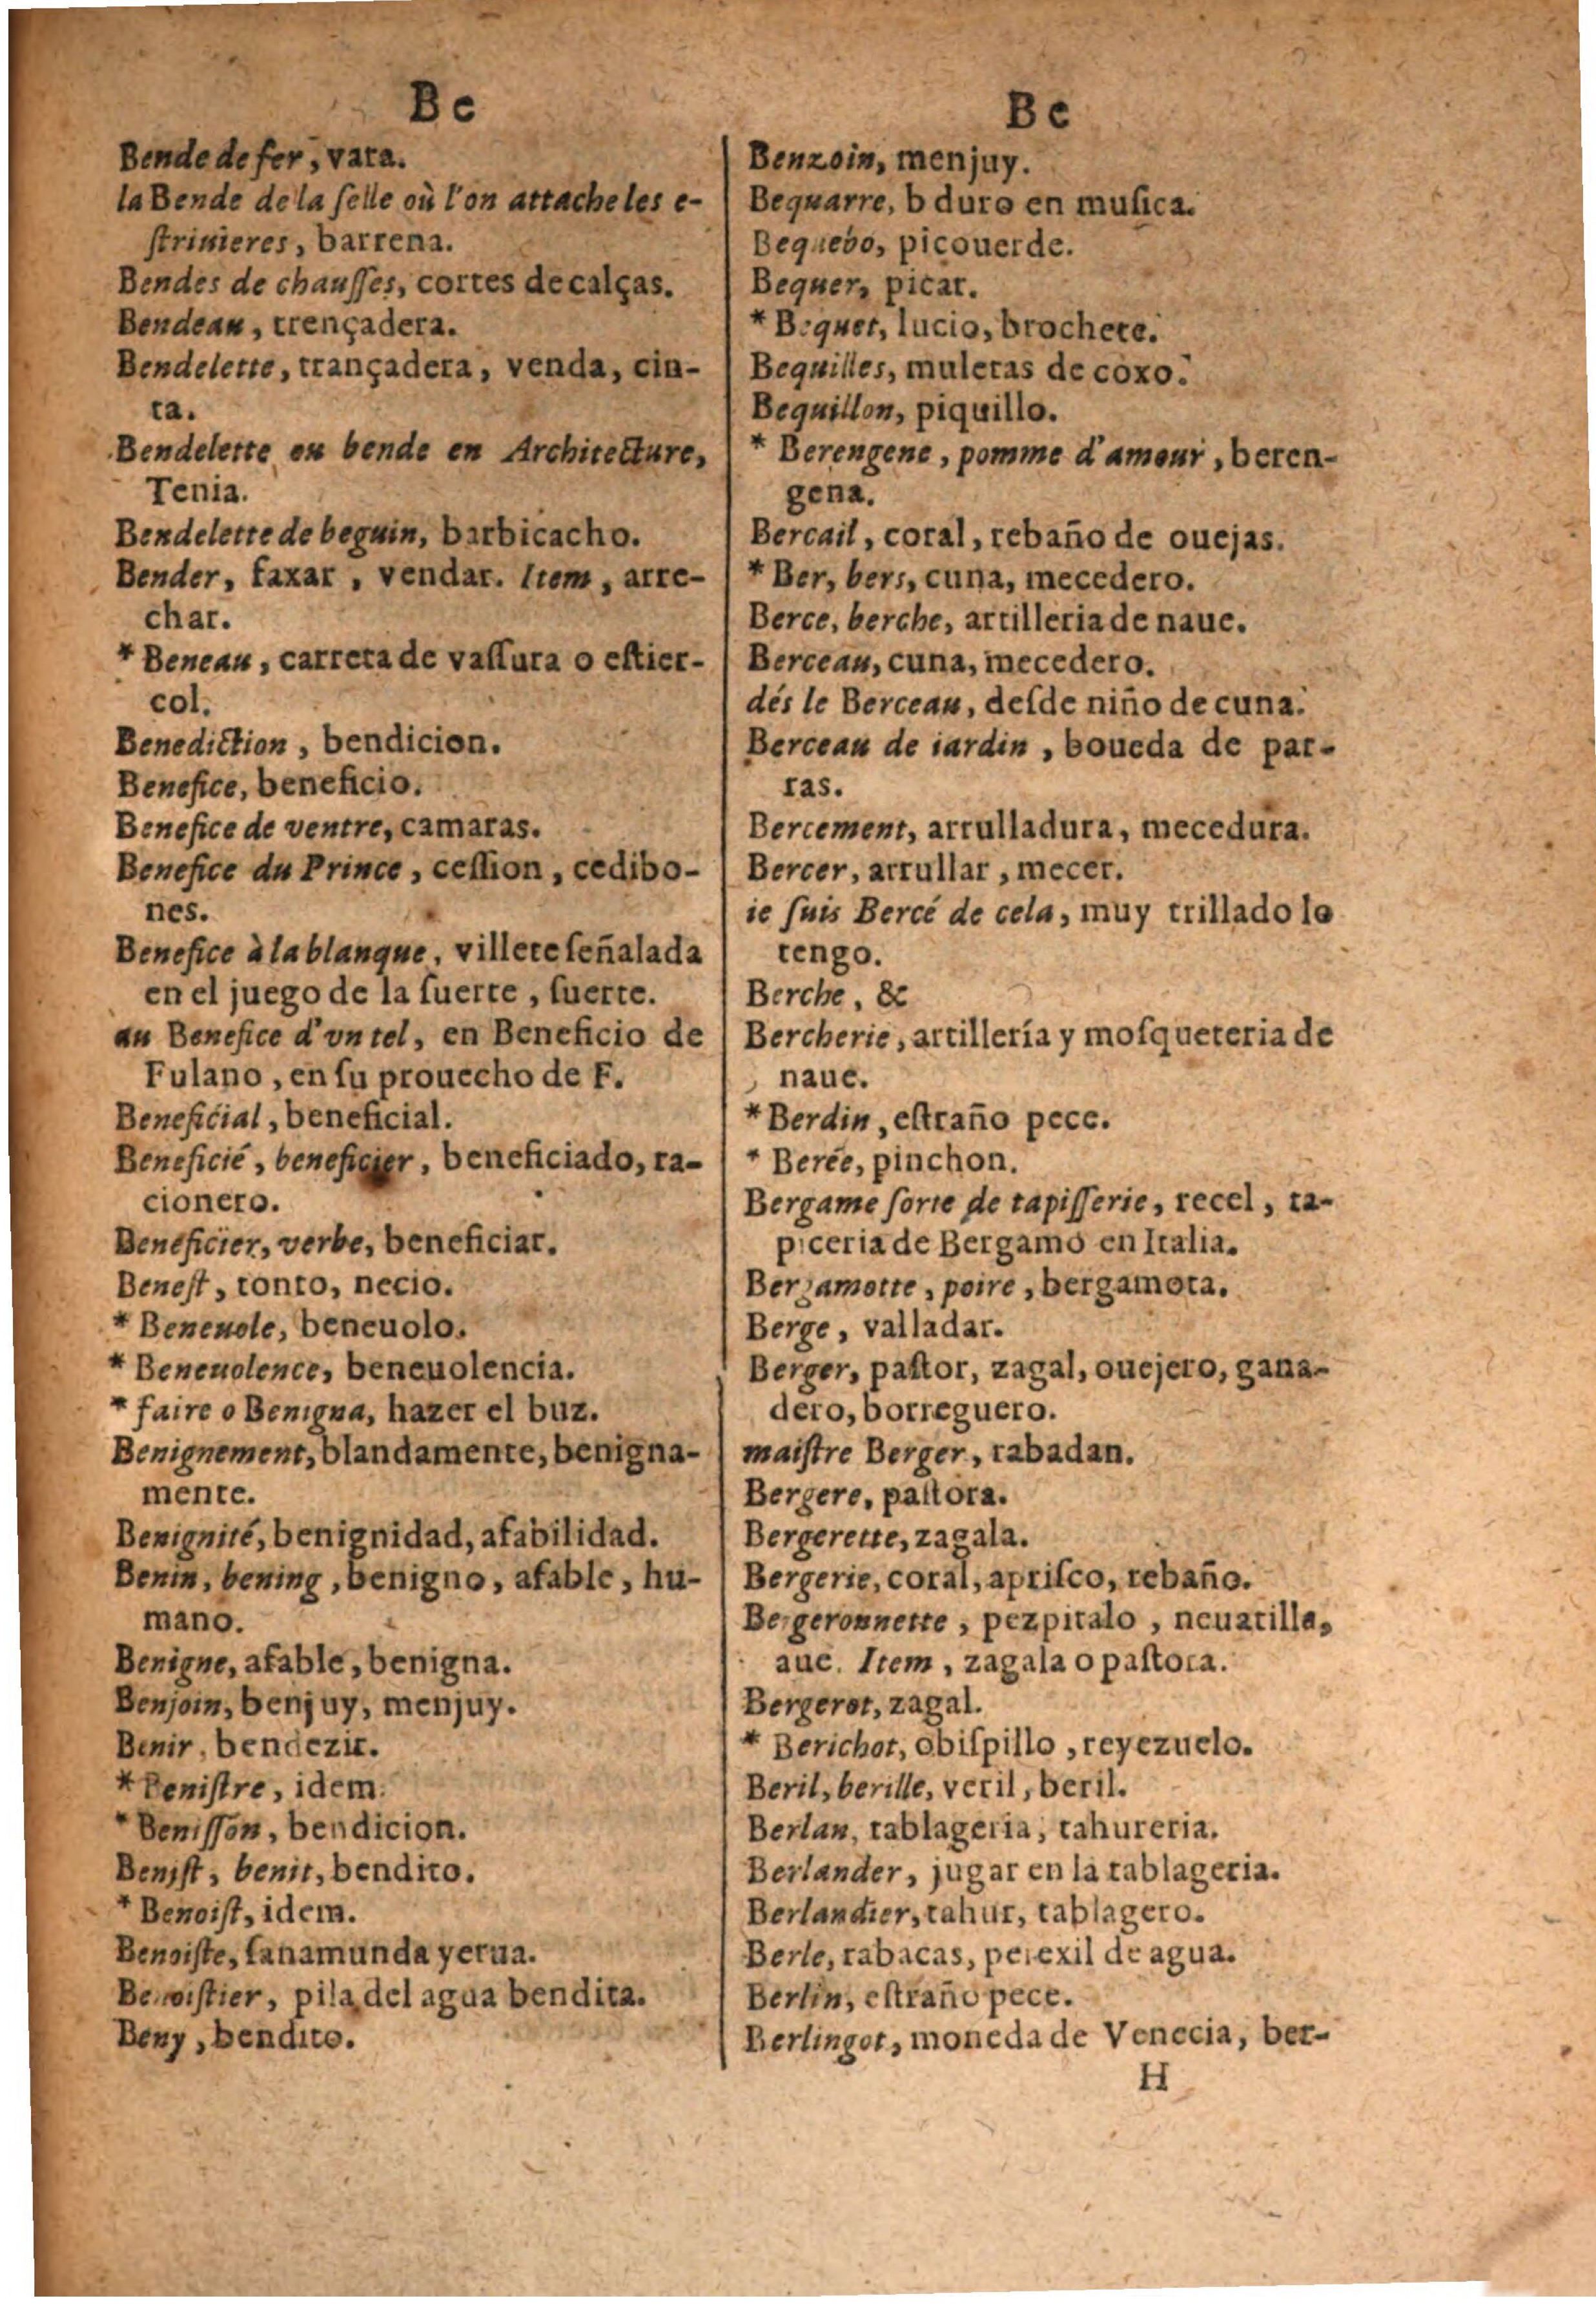 Be
Bende de fer, vara.
la Bende de la ſelle où l'on attache les e-
ſtriuieres, barrena.
Bendes de chauſſes, cortes de calças.
Bendeau, trençadera.
Bendelette, trançadera, venda, cin-
ta.
Bendelette ou bende en Architecture,
Tenia.
Bendelette de beguin, barbicacho.
Bender, faxar, vendar. Item, arre-
char.
* Beneau, carreta de vaſſura o eſtier-
col.
Benediction, bendicion.
Benefice, beneficio.
Benefice de ventre, camaras.
Benefice du Prince, ceſſion, cedibo-
nes.
Benefice à la blanque, villete ſeñalada
en el juego de la ſuerte, ſuerte.
au Benefice d'vn tel, en Beneficio de
Fulano, en ſu prouecho de F.
Beneficial, beneficial.
Beneficié, beneficier, beneficiado, ra-
cionero.
Beneficïer, verbe, beneficiar.
Beneſt, tonto, necio.
* Beneuole, beneuolo.
* Beneuolence, beneuolencia.
* faire o Benigna, hazer el buz.
Benignement, blandamente, benigna-
mente.
Benignité, benignidad, afabilidad.
Benin, bening, benigno, afable, hu-
mano.
Benigne, afable, benigna.
Benjoin, benjuy, menjuy.
Benir, bendezir.
* Beniſtre, idem.
* Beniſſon, bendicion.
Beniſt, benit, bendito.
* Benoiſt, idem.
Benoiſte, ſanamunda yerua.
Benoiſtier, pila del agua bendita.
Beny, bendito.
Be
Benzoin, menjuy.
Bequarre, b duro en muſica.
Bequebo, picouerde.
Bequer, picar.
* Bequet, lucio, brochete.
Bequilles, muletas de coxo.
Bequillon, piquillo.
* Berengene, pomme d'amour, beren-
gena.
Bercail, coral, rebaño de ouejas.
* Ber, bers, cuna, mecedero.
Berce, berche, artilleria de naue.
Berceau, cuna, mecedero.
dés le Berceau, deſde niño de cuna.
Berceau de iardin, boueda de par-
ras.
Bercement, arrulladura, mecedura.
Bercer, arrullar, mecer.
ie ſuis Bercé de cela, muy trillado lo
tengo.
Berche, &c
Bercherie, artillería y moſqueteria de
naue.
* Berdin, eſtraño pece.
* Berée, pinchon.
Bergame ſorte de tapiſſerie, recel, ta-
piceria de Bergamo en Italia.
Bergamotte, poire, bergamota.
Berge, valladar.
Berger, paſtor, zagal, ouejero, gana-
dero, borreguero.
maiſtre Berger, rabadan.
Bergere, paſtora.
Bergerette, zagala.
Bergerie, coral, apriſco, rebaño.
Bergeronnette, pezpitalo, neuatilla,
aue. Item, zagala o paſtora.
Bergerot, zagal.
* Berichot, obiſpillo, reyezuelo.
Beril, berille, veril, beril.
Berlan, tablageria, tahureria.
Berlander, jugar en la tablageria.
Berlandier, tahur, tablagero.
Berle, rabacas, perexil de agua.
Berlin, eſtraño pece.
Berlingot, moneda de Venecia, ber-
H